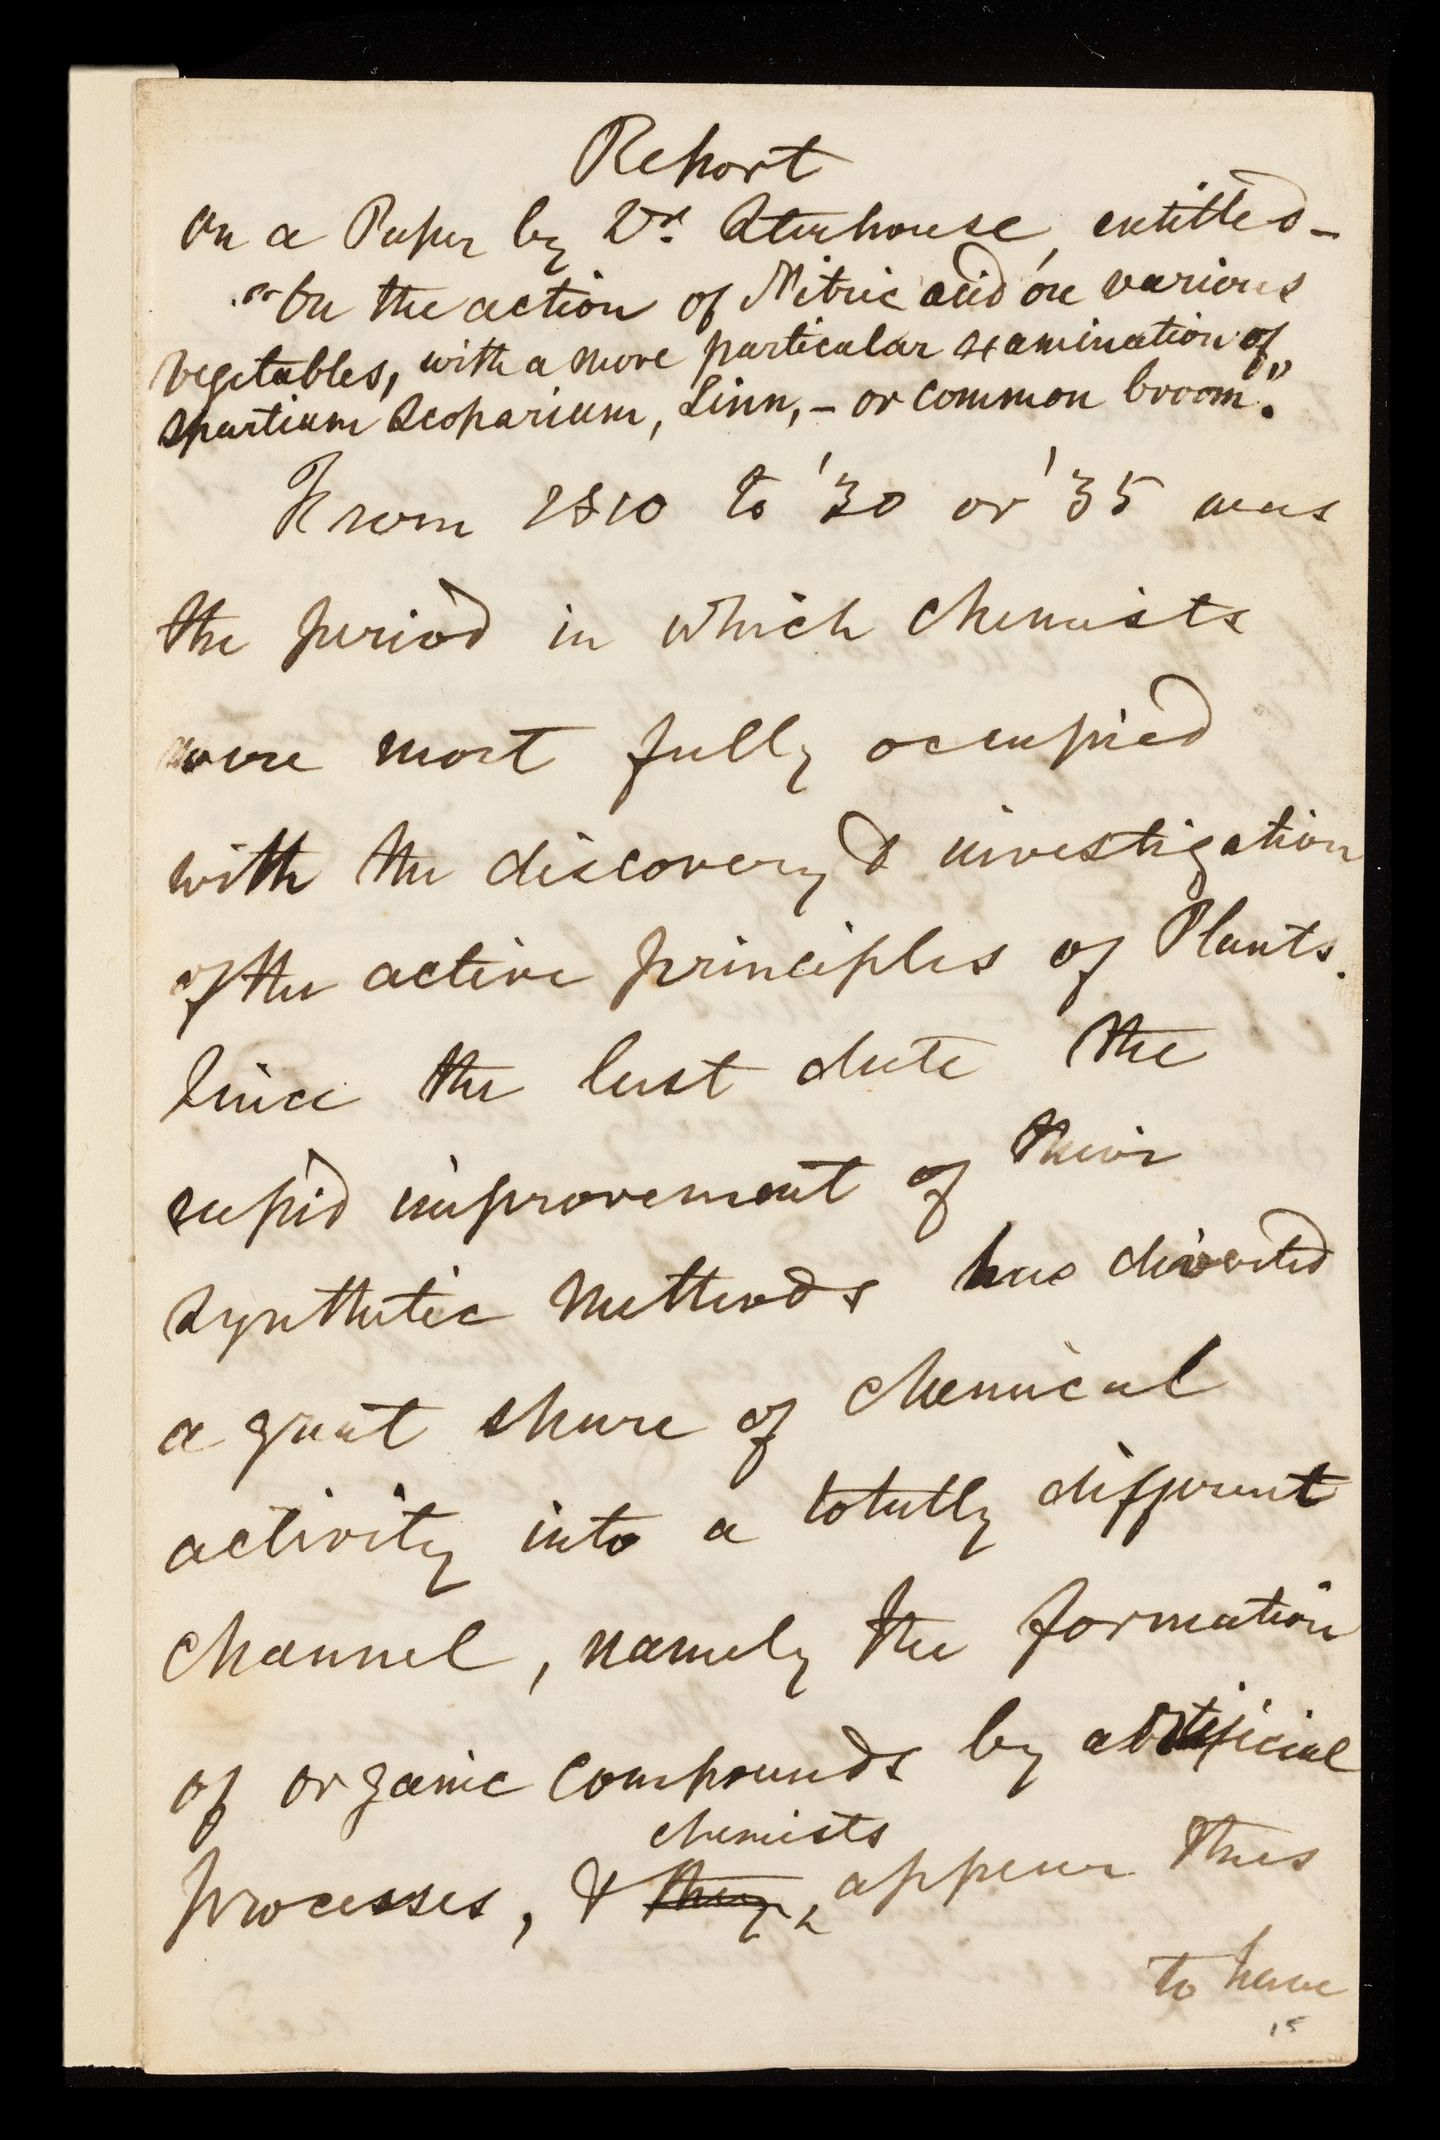 Report
on a Paper by Dr. Stenhouse, entitled –
"On the action of Nitric acid on various
vegetables, with a more particular examination of
Spartium Scoparium, Linn, – or common broom".
From 1810 to '30 or '35 was
the period in which chemists
were most fully occupied
with the discovery & investigation
of the active principles of Plants.
Since the last date the
rapid improvement of their
synthetic methods has diverted
a great share of chemical
activity into a totally different
channel, namely the formation
of organic compounds by artificial
chemists
processes, & they ^ appear thus
to have
15